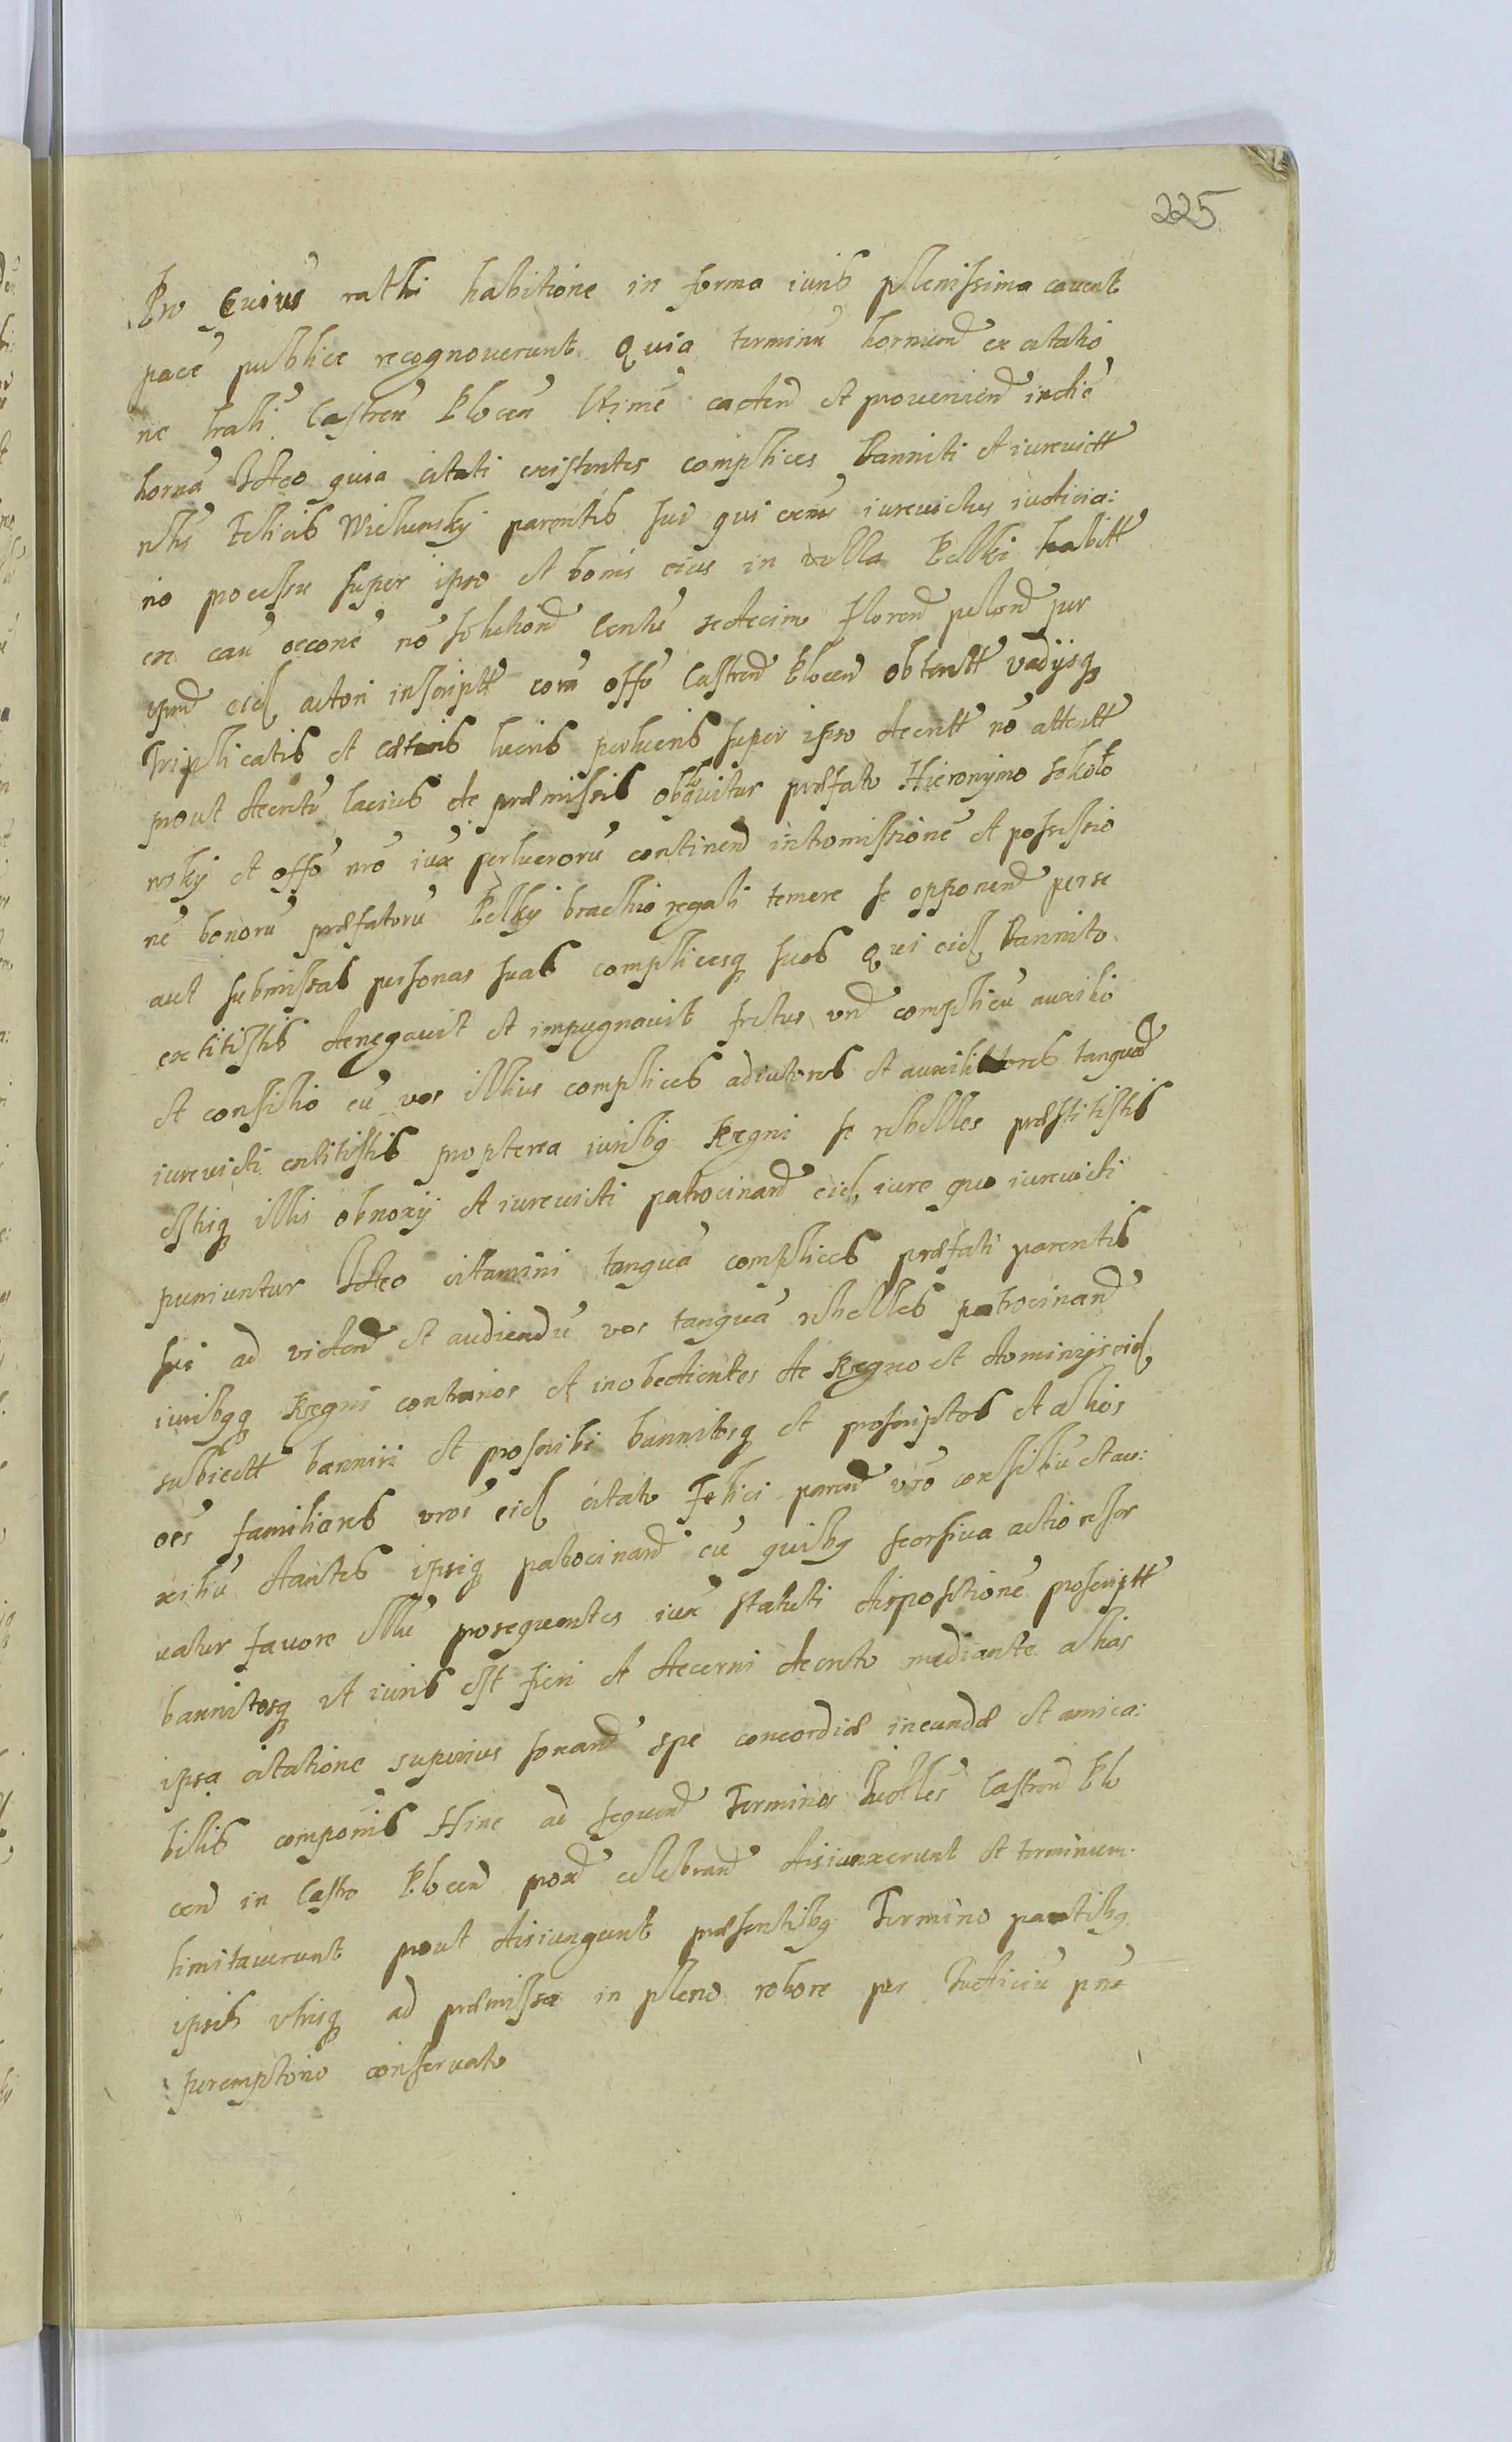 225
Pro Cuius rathi habitione in forma iuris plenissima cavent
pacē publice recognoverunt Quia terminū hornund ex citatio
ne trali Castren Plocen Ltimē cadend et proveniend in diē
hornā Ideo quia citati existentes complices Banniti et iurevictt
nlis Felicis Wielunsky parentis sui qui eius iurevictus iudicia:
rio processu super ipso et bonis eius in villa Pelki habitt
ex cau occone nō solutiond Centū sedecim Florend polond per
ipsud eid actori inscriptt corā offō Castrend Plocend obtentt vadijsq
triplicatis et cæteris lucris perlucris super ipso decrett nō attentt
prout decretū lacius de præmissis obloquitur præfato Hieronymo Sokoło
wsky et offō nrō iux perlucrorū continend intromissionē et possessio
nē bonorū præfatorū Pelky brachio regali temere se opponend per se
aut submissas personas suas complicesq suos Qui eid Bannito
extitistis denegavit et impugnavit fretus vrd complicū auxilio
et consilio cū vos illius complices adiutores et auxiliatores tanquad
iurevicti extitistis propterea iuribq Regni se rebelles præstitistis
estisq illis obnoxij et iurevicti patrocinand eid iure quo iurevicti
puniuntur Ideo citamini tanquā complices præfati parentis
sui ad videnđ et audiendū vos tanquā rebelles patrocinand
iuribqq Regni contrarios et inobedientes de Regno et dominijs eid
subiectt banniri et proscribi bannitosq et proscriptos et alios
oēs familiares vros eid citato Felici parend vro consiliū et au:
xiliū dantes ipsiq patrocinand cū quibq seorsiva actio reser
vatur favore illū prosequentes iux statuti dispositionē proscriptt
bannitosq ut iuris est fieri et decerni decreto mediante alias
ipsa citatione superius sonand spe concordiæ ineundæ et amica:
bilis componis Hinc ad sequend Terminos Iudlles Castrend Plo
cend in Castro Plocend prox celebrand disiunxerunt et terminum
limitaverunt prout disiungunt præsentibq Termino partibq
ipsis utrisq ad præmissa in pleno robore per Iudiciū pns
peremptorio conservato